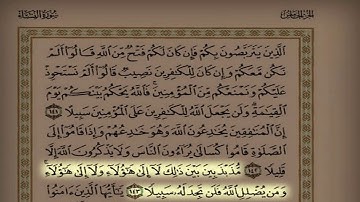 الجزء الخامس سورة النساء
الَّذِينَ يَتَرَبَّصُونَ بِكُمْ فَإِن كَانَ لَكُمْ فَتْحٌ مِّنَ اللَّهِ قَالُوٓا۟ أَلَمْ
نَكُن مَّعَكُمْ وَإِن كَانَ لِلْكَٰفِرِينَ نَصِيبٌ قَالُوٓا۟ أَلَمْ نَسْتَحْوِذْ
عَلَيْكُمْ وَنَمْنَعْكُم مِّنَ الْمُؤْمِنِينَ فَاللَّهُ يَحْكُمُ بَيْنَكُمْ يَوْمَ
الْقِيَٰمَةِ وَلَن يَجْعَلَ اللَّهُ لِلْكَٰفِرِينَ عَلَى الْمُؤْمِنِينَ سَبِيلًا ١٤١
إِنَّ الْمُنَٰفِقِينَ يُخَٰدِعُونَ اللَّهَ وَهُوَ خَٰدِعُهُمْ وَإِذَا قَامُوٓا۟ إِلَى
الصَّلَوٰةِ قَامُوا۟ كُسَالَىٰ يُرَآءُونَ النَّاسَ وَلَا يَذْكُرُونَ اللَّهَ إِلَّا
قَلِيلًا ١٤٢ مُّذَبْذَبِينَ بَيْنَ ذَٰلِكَ لَآ إِلَىٰ هَٰٓؤُلَآءِ وَلَآ إِلَىٰ هَٰٓؤُلَآءِ
وَمَن يُضْلِلِ اللَّهُ فَلَن تَجِدَ لَهُۥ سَبِيلًا ١٤٣ يَٰٓأَيُّهَا الَّذِينَ ءَامَنُوا۟